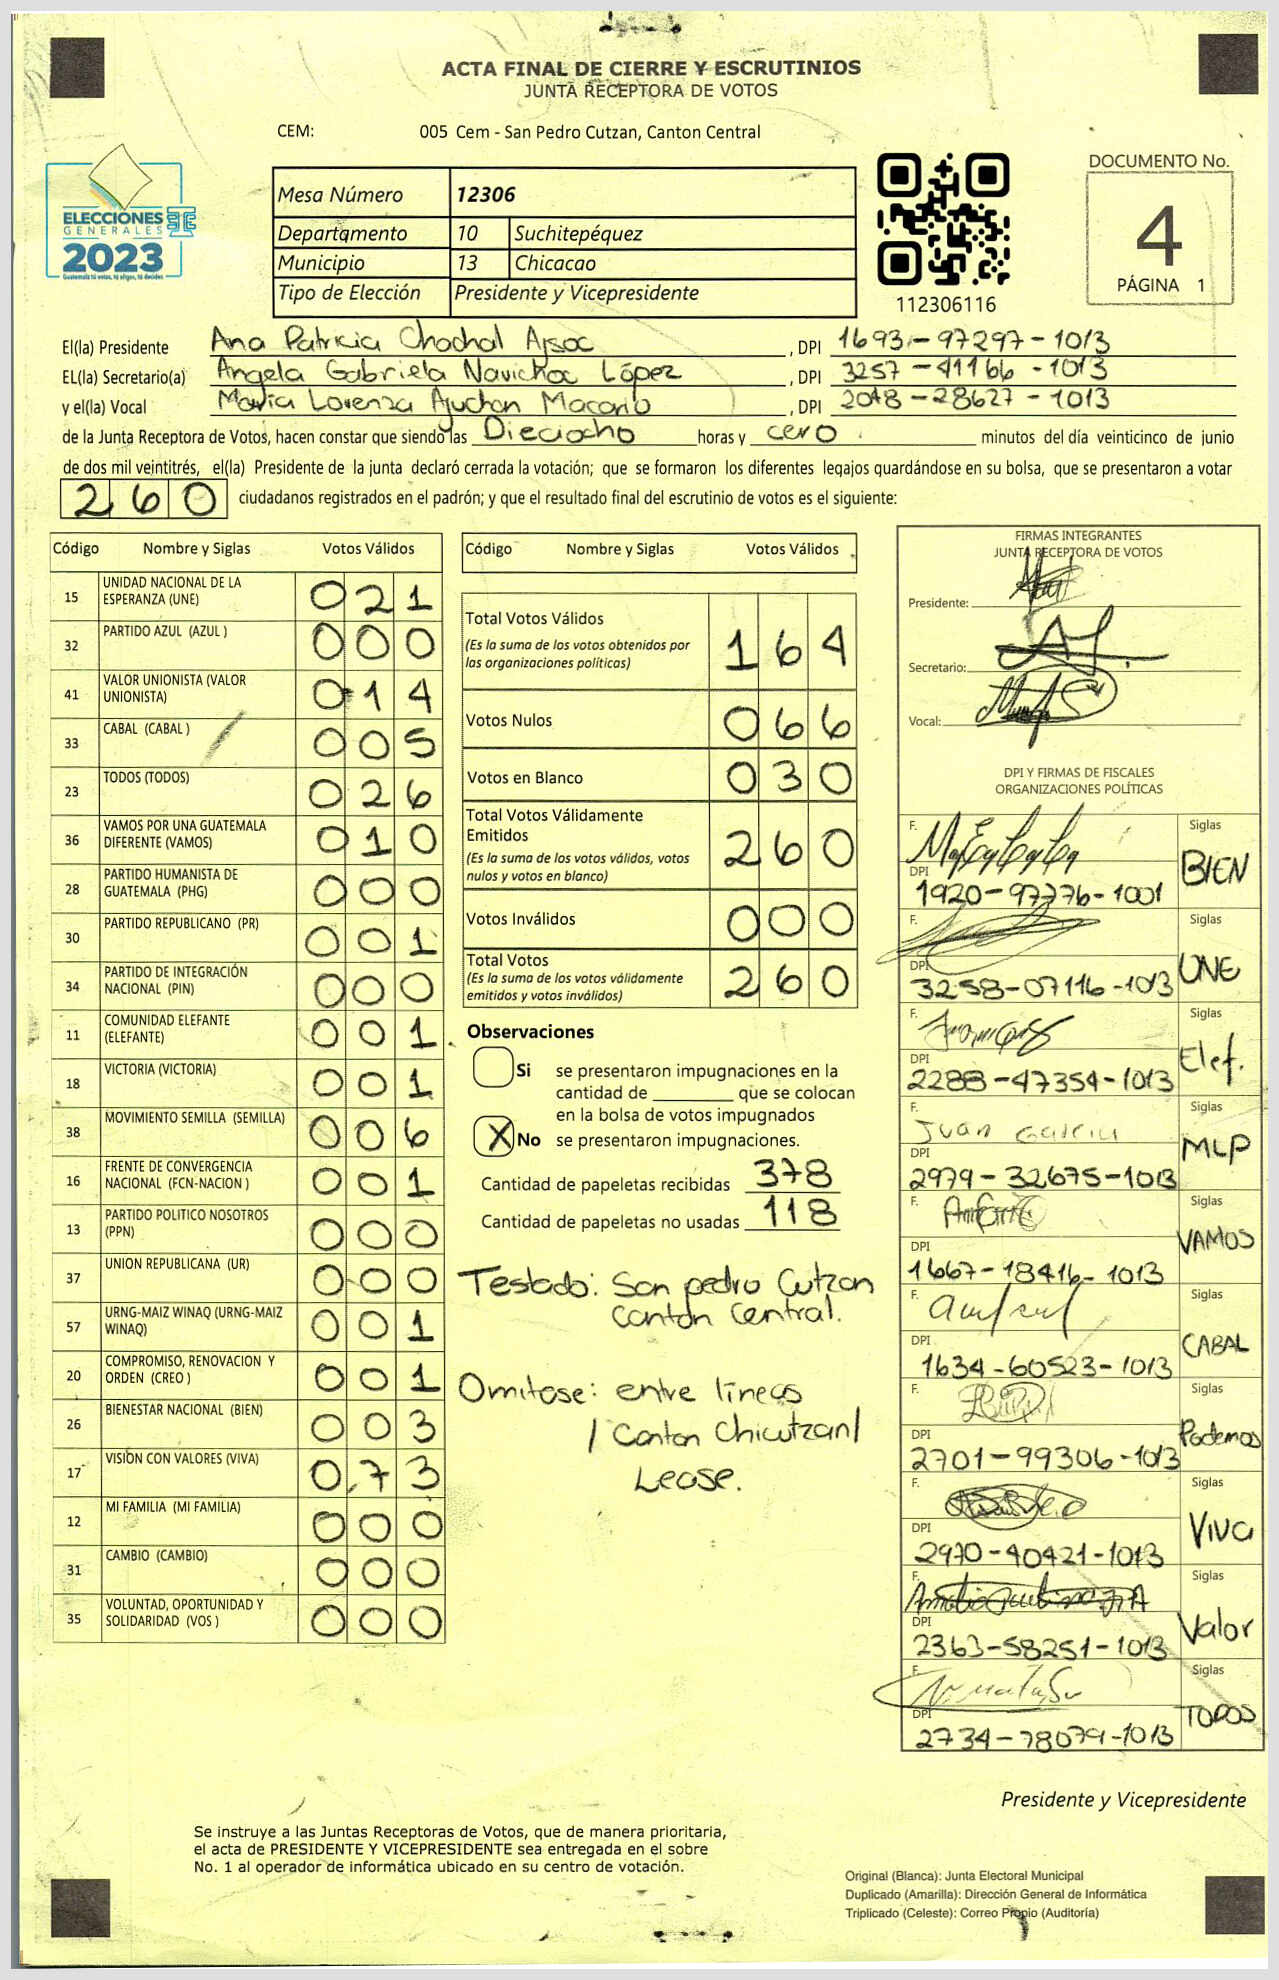 ACTA FINAL DE CIERRE Y ESCRUTINIOS
JUNTA RECEPTORA DE VOTOS
CEM: 005 Cem - San Pedro Cutzan, Canton Central
ELECCIONES
GENERALES
2023
Guatemala tú votas, tú eliges, tú decides
Mesa Número 12306
Departamento 10 Suchitepéquez
Municipio 13 Chicacao
Tipo de Elección Presidente y Vicepresidente
112306116
DOCUMENTO No.
4
PÁGINA 1
El(la) Presidente Ana Patricia Chochal Ajsoc, DPI 1693-97297-1013
EL(la) Secretario(a) Angela Gabriela Navichoc López, DPI 3257-41166-1013
y el(la) Vocal Maria Lorenza Ajuchan Macario, DPI 2048-28627-1013
de la Junta Receptora de Votos, hacen constar que siendo las Dieciocho horas y cero minutos del día veinticinco de junio
de dos mil veintitrés, el(la) Presidente de la junta declaró cerrada la votación; que se formaron los diferentes legajos quardándose en su bolsa, que se presentaron a votar
260 ciudadanos registrados en el padrón; y que el resultado final del escrutinio de votos es el siguiente:
Código Nombre y Siglas Votos Válidos
15 UNIDAD NACIONAL DE LA ESPERANZA (UNE) 021
32 PARTIDO AZUL (AZUL ) 000
41 VALOR UNIONISTA (VALOR UNIONISTA) 014
33 CABAL (CABAL ) 005
23 TODOS (TODOS) 026
36 VAMOS POR UNA GUATEMALA DIFERENTE (VAMOS) 010
28 PARTIDO HUMANISTA DE GUATEMALA (PHG) 000
30 PARTIDO REPUBLICANO (PR) 001
34 PARTIDO DE INTEGRACIÓN NACIONAL (PIN) 000
11 COMUNIDAD ELEFANTE (ELEFANTE) 001
18 VICTORIA (VICTORIA) 001
38 MOVIMIENTO SEMILLA (SEMILLA) 006
16 FRENTE DE CONVERGENCIA NACIONAL (FCN-NACION ) 001
13 PARTIDO POLITICO NOSOTROS (PPN) 000
37 UNION REPUBLICANA (UR) 000
57 URNG-MAIZ WINAQ (URNG-MAIZ WINAQ) 001
20 COMPROMISO, RENOVACION Y ORDEN (CREO ) 001
26 BIENESTAR NACIONAL (BIEN) 003
17 VISION CON VALORES (VIVA) 073
12 MI FAMILIA (MI FAMILIA) 000
31 CAMBIO (CAMBIO) 000
35 VOLUNTAD, OPORTUNIDAD Y SOLIDARIDAD (VOS ) 000
Código Nombre y Siglas Votos Válidos
Total Votos Válidos 164
(Es la suma de los votos obtenidos por
las organizaciones políticas)
Votos Nulos 066
Votos en Blanco 030
Total Votos Válidamente
Emitidos 260
(Es la suma de los votos válidos, votos
nulos y votos en blanco)
Votos Inválidos 000
Total Votos 260
(Es la suma de los votos válidamente
emitidos y votos inválidos)
Observaciones
Si se presentaron impugnaciones en la
cantidad de ________ que se colocan
en la bolsa de votos impugnados
X No se presentaron impugnaciones.
Cantidad de papeletas recibidas 378
Cantidad de papeletas no usadas 118
Testado: San pedro Cutzan
canton Central.
Omitase: entre líneas
/ Canton Chicutzan/
Lease.
FIRMAS INTEGRANTES
JUNTA RECEPTORA DE VOTOS
Presidente:
Secretario:
Vocal:
DPI Y FIRMAS DE FISCALES
ORGANIZACIONES POLÍTICAS
F. Siglas
DPI 1920-97776-1001 BIEN
F. Siglas
DPI 3258-07116-1013 UNE
F. Siglas
DPI 2288-47354-1013 Elef.
F. Juan Garcia Siglas
DPI 2979-32675-1013 MLP
F. Siglas
DPI 1667-18416-1013 VAMOS
F. Siglas
DPI 1634-60523-1013 CABAL
F. Siglas
DPI 2701-99306-1013 Podemos
F. Siglas
DPI 2970-40421-1013 Viva
F. Siglas
DPI 2363-58251-1013 Valor
F. Siglas
DPI 2734-78079-1013 TODOS
Presidente y Vicepresidente
Se instruye a las Juntas Receptoras de Votos, que de manera prioritaria,
el acta de PRESIDENTE Y VICEPRESIDENTE sea entregada en el sobre
No. 1 al operador de informática ubicado en su centro de votación.
Original (Blanca): Junta Electoral Municipal
Duplicado (Amarilla): Dirección General de Informática
Triplicado (Celeste): Correo Propio (Auditoría)